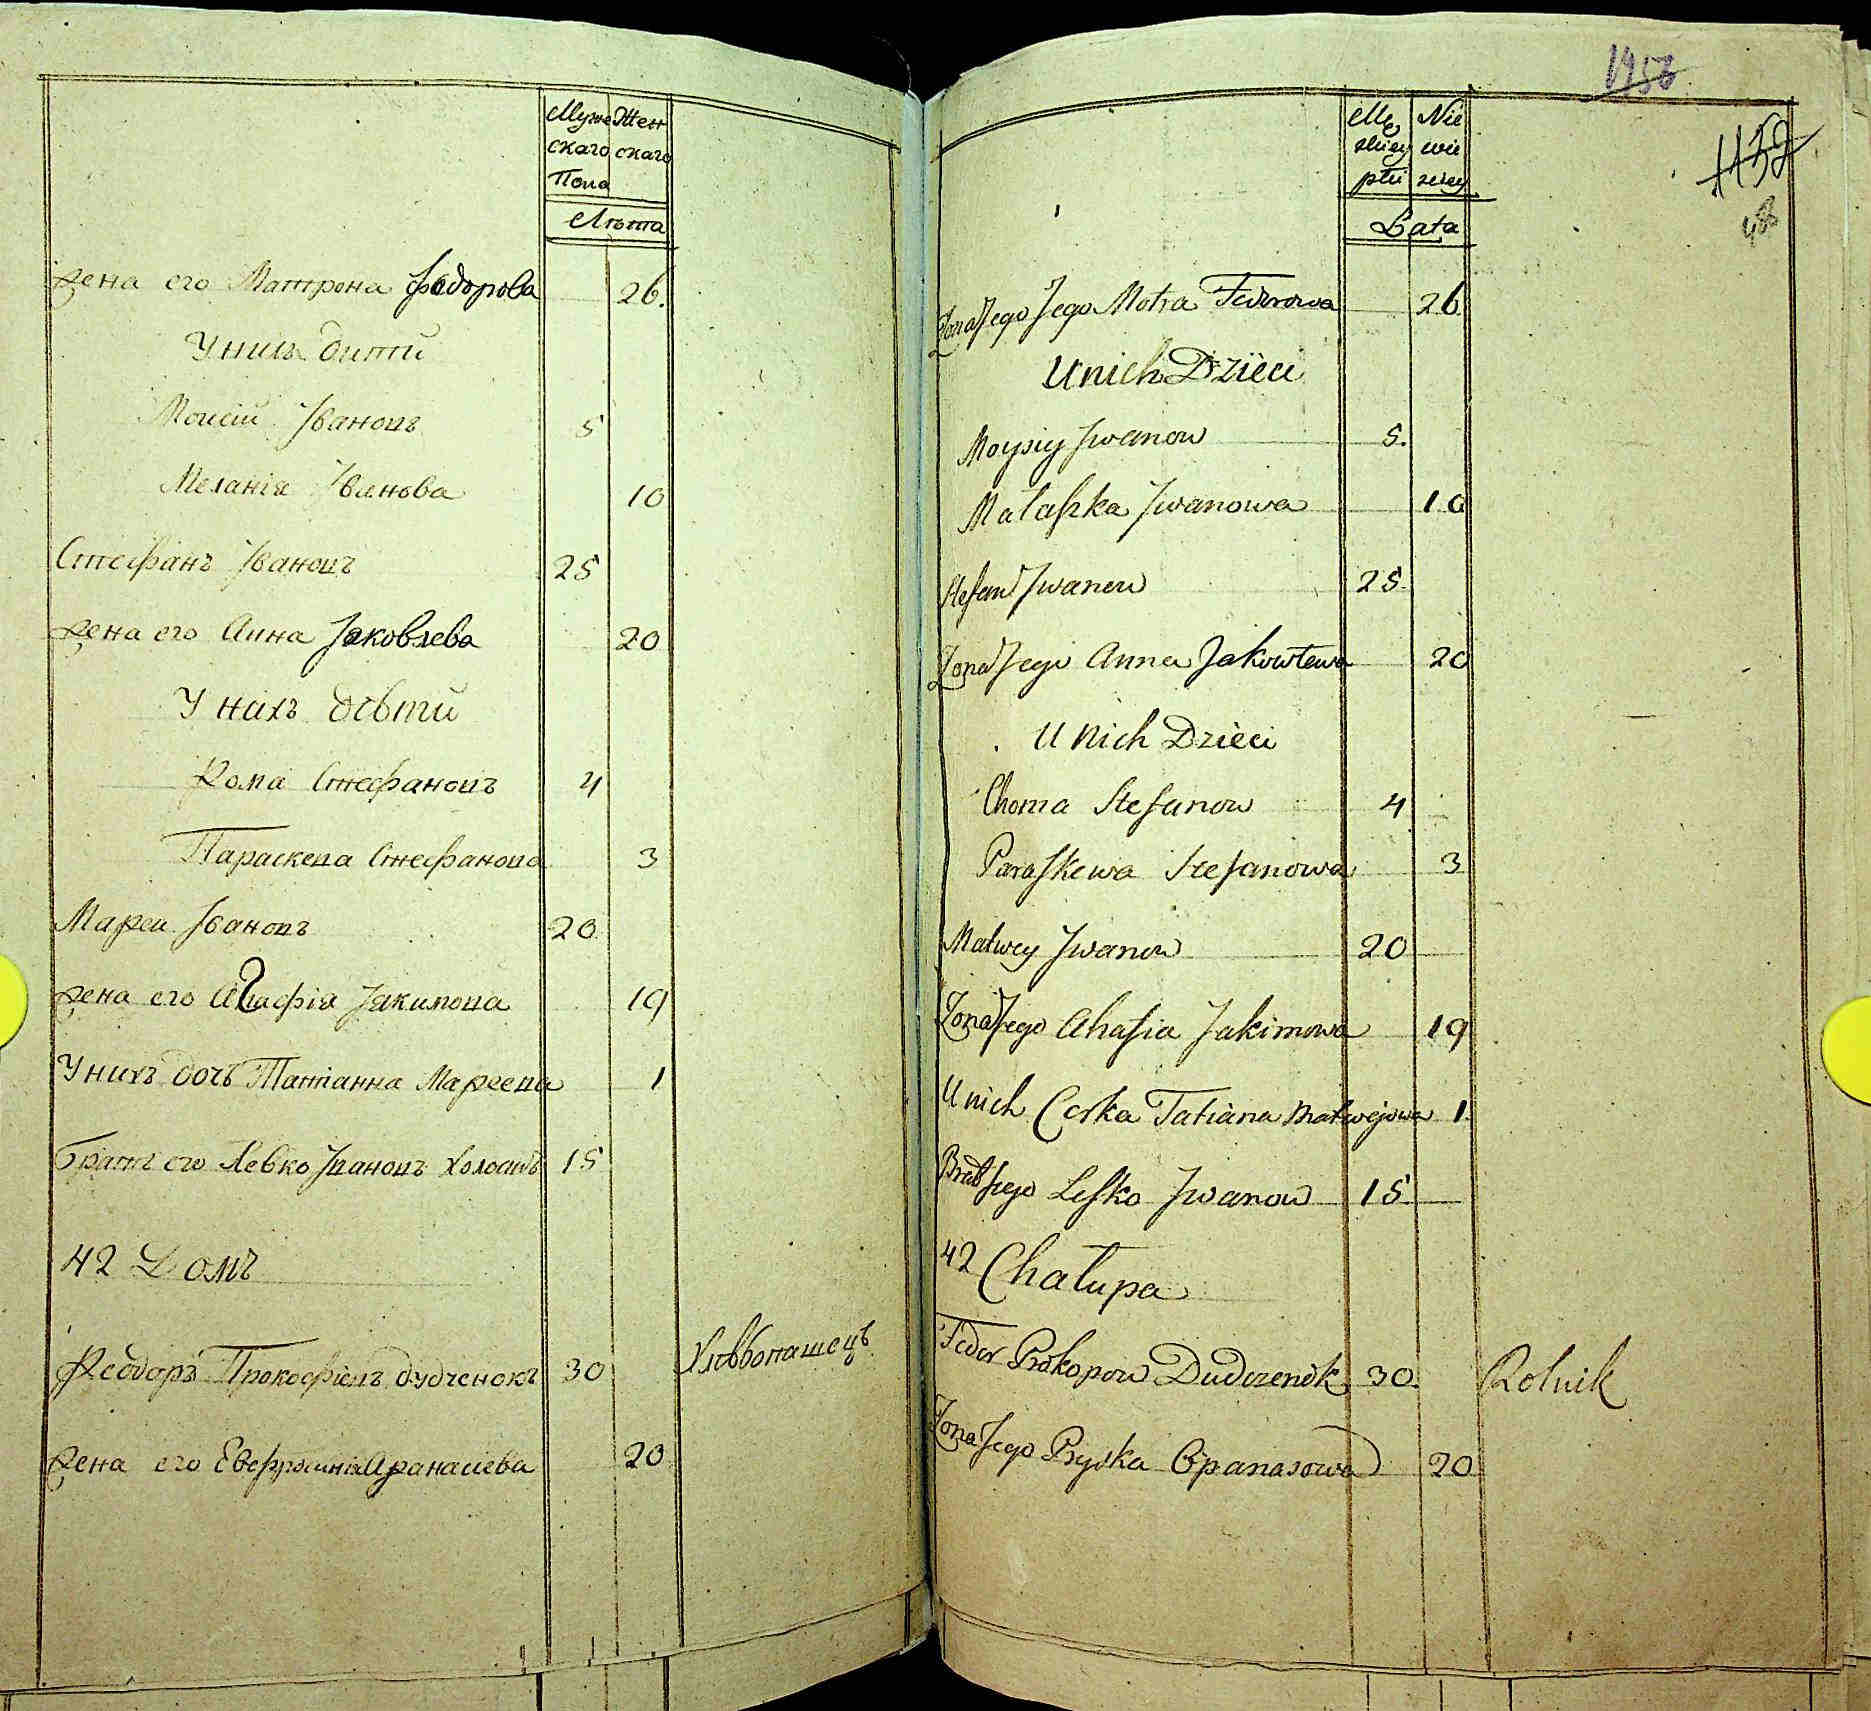 Муже Жен
скаго скаго
Пола
Лѣта
жена его Матрона Федорова 26.
У нихъ дити
Моисій Івановъ 5
Меланія Іванова 10
Стефанъ Івановъ 25
жена его Анна Јаковлева 20
У нихъ дѣти
Ѳома Стефановъ 4
Параскева Стефанова 3
Маѳеи Івановъ 20
жена его Агафія Јакимова 19
У нихъ дочь Татіанна Маѳеева 1
братъ его Левко Івановъ холостъ 15
42 Домъ
Ѳеодоръ Прокофіевъ дудченокъ 30 Хлѣбопашецъ
жена его Евфросинія Афанасиева 20
1958
Mę Nie
zkiey wie
płci sciey
Lata
488
Zona Jego Jego Motra Fedorowa 26
U nich Dzieci
Moysiy Jwanow 5.
Małaszka Jwanowa 10
Stefan Jwanow 25.
Zona Jego Anna Jakowlewa 20
U Nich Dzieci
Choma Stefanow 4
Paraskewa Stefanowa 3
Matwey Jwanow 20
Zona Jego Ahafia Jakimowa 19
U nich Corka Tatiana Matwejowa 1.
Brat Jego Lesko Jwanow 15
42 Chałupa
Fedor Prokopow Dudczenok 30. Rolnik
Zona Jego Pryska Opanasowa 20